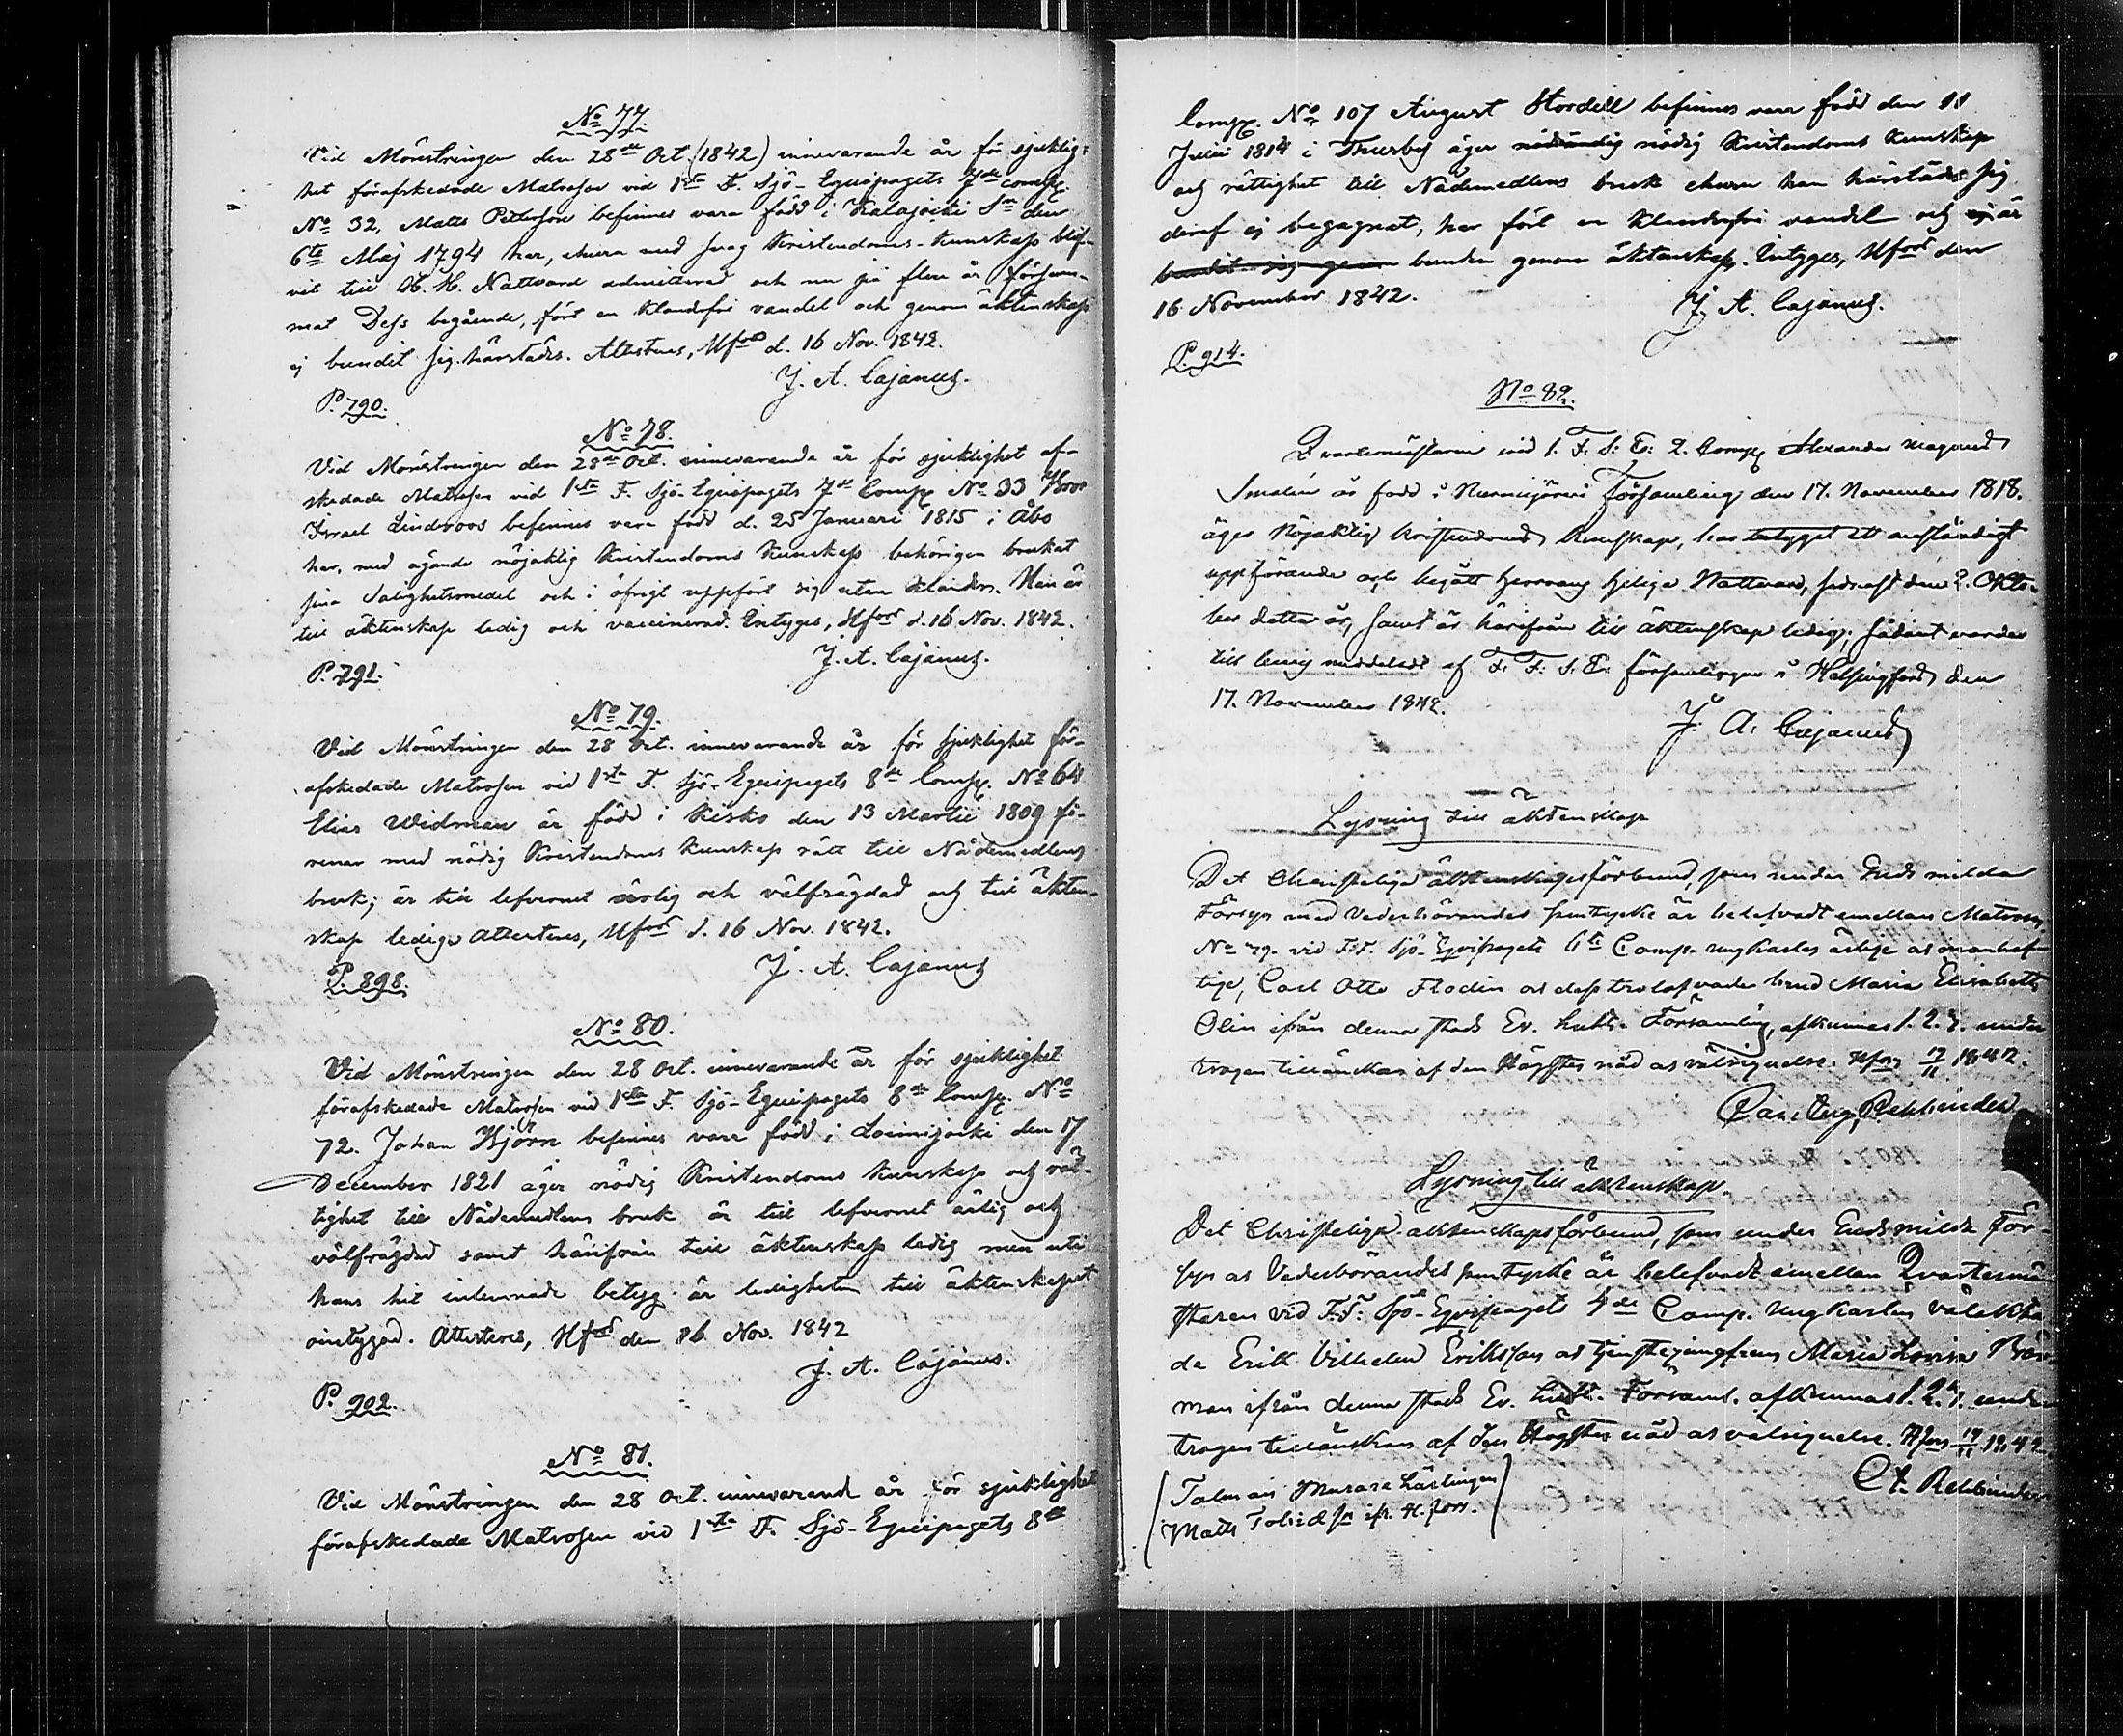 No 77.
Vid Mönstringen den 28de Oct. (1842) innevarande år för sjuklig-
het förafskedade Matrosen vid 1sta F. Sjö-Equipagets 7de comp.
No 32, Matts Pettersson befinnes vara född i Kalajoki Sn den
6te Maj 1794 har, ehuru med svag Kristendoms-Kunskap blif-
vit till H. H. Nattvard admitterad och nu på flere år försum-
mat Dess begående, fört en klanderfri vandel och genom äktenskap
ej bundit sig härstädes. Attesteras, Hfors d. 16 Nov. 1842.
J. A. Cajanus.
P. 790.
No 78.
Vid Mönstringen den 28de Oct. innevarande år för sjuklighet af-
skedade Matrosen vid 1sta F. Sjö-Equipagets 7de Comp. No 33
Israel Lindroos befinnes vara född d. 25 Januari 1815 i Åbo
har, med ägande nöjaktig Kristendoms Kunskap behörigen brukat
sina Salighetsmedel och i öfrigt uppfört sig utan klander. Han är
till äktenskap ledig och vaccinerad. Intygas, Hfors d. 16 Nov. 1842.
J. A. Cajanus.
P. 791.
No 79.
Vid Mönstringen den 28 Oct. innevarande år för sjuklighet för-
afskedade Matrosen vid 1sta F. Sjö-Equipagets 8de Comp. No 64
Elias Widman är född i Kisko den 13 Martii 1809 fö-
renar med nödig Kristendoms Kunskap rätt till Nådemedlens
bruk; är till lefvernet ärlig och välfrägdad och till äkten-
skap ledig. Attesteras, Hfors d. 16 Nov. 1842.
J. A. Cajanus
P. 898.
No 80.
Vid Mönstringen den 28 Oct. innevarande år för sjuklighet
förafskedade Matrosen vid 1sta F. Sjö-Equipagets 8de Comp. No
72. Johan Björn befinnes vara född i Loimijoki den 17
December 1821 äger nödig Kristendoms Kunskap och rät-
tighet till Nådemedlens bruk är till lefvernet ärlig och
välfrägdad samt härifrån till äktenskap ledig men uti
hans hit inlemnade betyg är ledigheten till äktenskapet
ointygad. Attesteras, Hfors den 16 Nov. 1842
J. A. Cajanus.
P. 902.
No 81.
Vid Mönstringen den 28 Oct. innevarande år för sjuklighet
förafskedade Matrosen vid 1sta F. Sjö-Equipagets 8de
Comp. No 107 August Stordell befinnes vara född den 11
Julii 1814 i Thusby äger nödig Kristendoms Kunskap
och rättighet till Nådemedlens bruk ehuru han härstädes sig
deraf ej begagnat, har fört en klanderfri vandel och ej är
bundit sig genom bunden genom äktenskap. Intygas, Hfors den
16 November 1842.
J. A. Cajanus.
P. 914.
No 82.
Qvartermästaren vid 1. F. S. E: 2. Comp. Alexander Magnus
Smalin är född i Nurmijärvi Församling den 17. November 1818.
äger Nöjaktig Kristendoms Kunskap, har betygat ett anständigt
uppförande och begått Herrans Heliga Nattvard, sednast den 2. Okto-
ber detta år, samt är härifrån till Äktenskap ledig; sådant varder
till bevis meddeladt af F. F. S. E. församlingen i Helsingfors den
17. November 1842.
J. A. Cajanus
Lysning till äktenskap
Det Christeliga äktenskapsförbund, som under Guds milda
Försyn med Vederbörandes samtycke är belefvadt emellan Matrosen
No 79. vid F. F. Sjö-Eqvipagets 6te Comp. ungkarlen ärlige o manhaf-
tige, Carl Otto Flodin o dess trolofvade brud Maria Elisabeth
Olin ifrån denna stads Ev. Luth. Församling, afkunnas 1. 2. 3. under
trogen tillönskan af den Högstes nåd o välsignelse. Hfors 17/11 1842.
Carl Aug. Rehbinder
Lysning till äktenskap.
Det Christeliga äktenskapsförbund, som under Guds milda För-
syn o Vederbörandes samtycke är belefvadt emellan Qvartermä-
staren vid F. F. Sjö-Eqvipagets 4de Comp. Ungkarlen välakta-
de Erik Vilhelm Eriksson o tjenstejungfrun Maria Lovisa
man ifrån denna stads Ev. Luth. Församl. afkunnas 1. 2. 3. under
trogen tillönskan af den Högstes nåd o välsignelse. Hfors 17/11 1842
C A Rehbinder
(Talman Murare Lärlingen
Matts ifr. H.fors.)